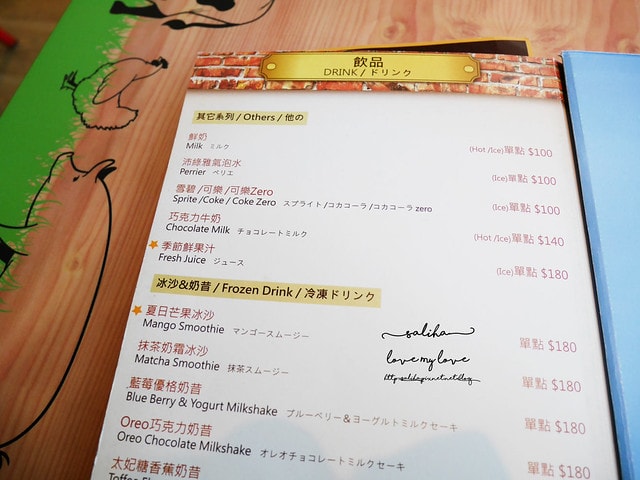 飲品
DRINK / ドリンク
其它系列 / Others / 他の
鮮奶
Milk ミルク (Hot /Ice)單點 $100
沛綠雅氣泡水
Perrier ペリエ (Ice)單點 $100
雪碧 /可樂 /可樂Zero
Sprite /Coke / Coke Zero スプライト /コカコーラ /コカコーラ zero (Ice)單點 $100
巧克力牛奶
Chocolate Milk チョコレートミルク (Hot /Ice)單點 $140
季節鮮果汁
Fresh Juice ジュース (Ice)單點 $180
冰沙&奶昔 / Frozen Drink / 冷凍ドリンク
夏日芒果冰沙
Mango Smoothie マンゴースムージー 單點 $180
抹茶奶霜冰沙
Matcha Smoothie 抹茶スムージー 單點 $180
藍莓優格奶昔
Blue Berry & Yogurt Milkshake ブルーベリー＆ヨーグルトミルクセーキ 單點 $180
Oreo巧克力奶昔
Oreo Chocolate Milkshake オレオチョコレートミルクセーキ 單點 $180
太妃糖香蕉奶昔
saliha
love my love